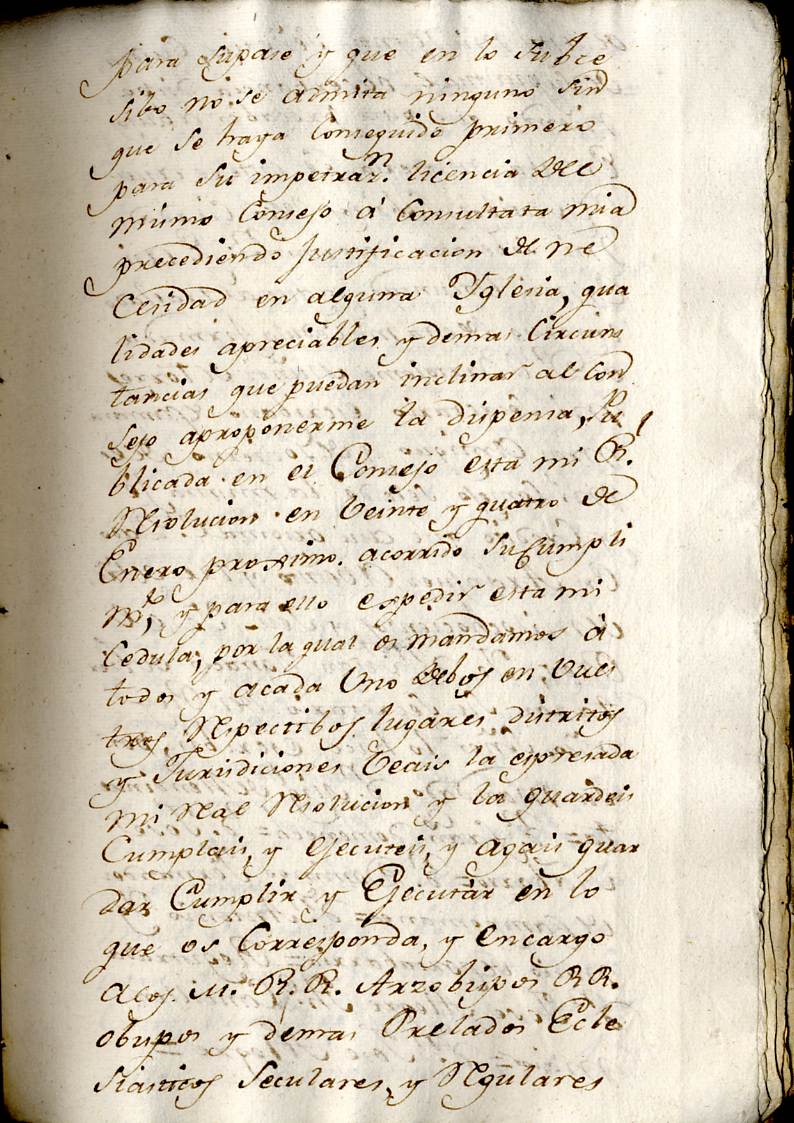 para supase y que en lo subce
sibo no se admita ninguno sin
que se haya Conseguido primero
para su impetraz.n licencia del
mismo Consejo á Consultata mia
precediendo justificacion de ne
cesidad en alguna Yglesia, qua
lidades apreciables y demas Circuns
tancias que puedan inclinar al Con
sejo aproponerme la dispensa, Pu
blicada en el Consejo esta mi R.l
Resolucion en Veinte y quatro de
Enero proximo. acorrido su Cumpli
m.to, y para ello expedir esta mi
Cedula, por la qual os mandamos á
todos y acada Uno debos en Vues
tros Respectibos lugares distritos
y Jurisdiciones Veais la expresada
mi Real Resolucion y la guardeis
Cumplais, y ejecuteis, y agais guar
dar Cumplir y Ejecutar en lo
que os Corresponda, y encargo
alos M. R. R. Arzobispos RR.
obispos y demas Prelados Ecle
siasticos Seculares, y Regulares